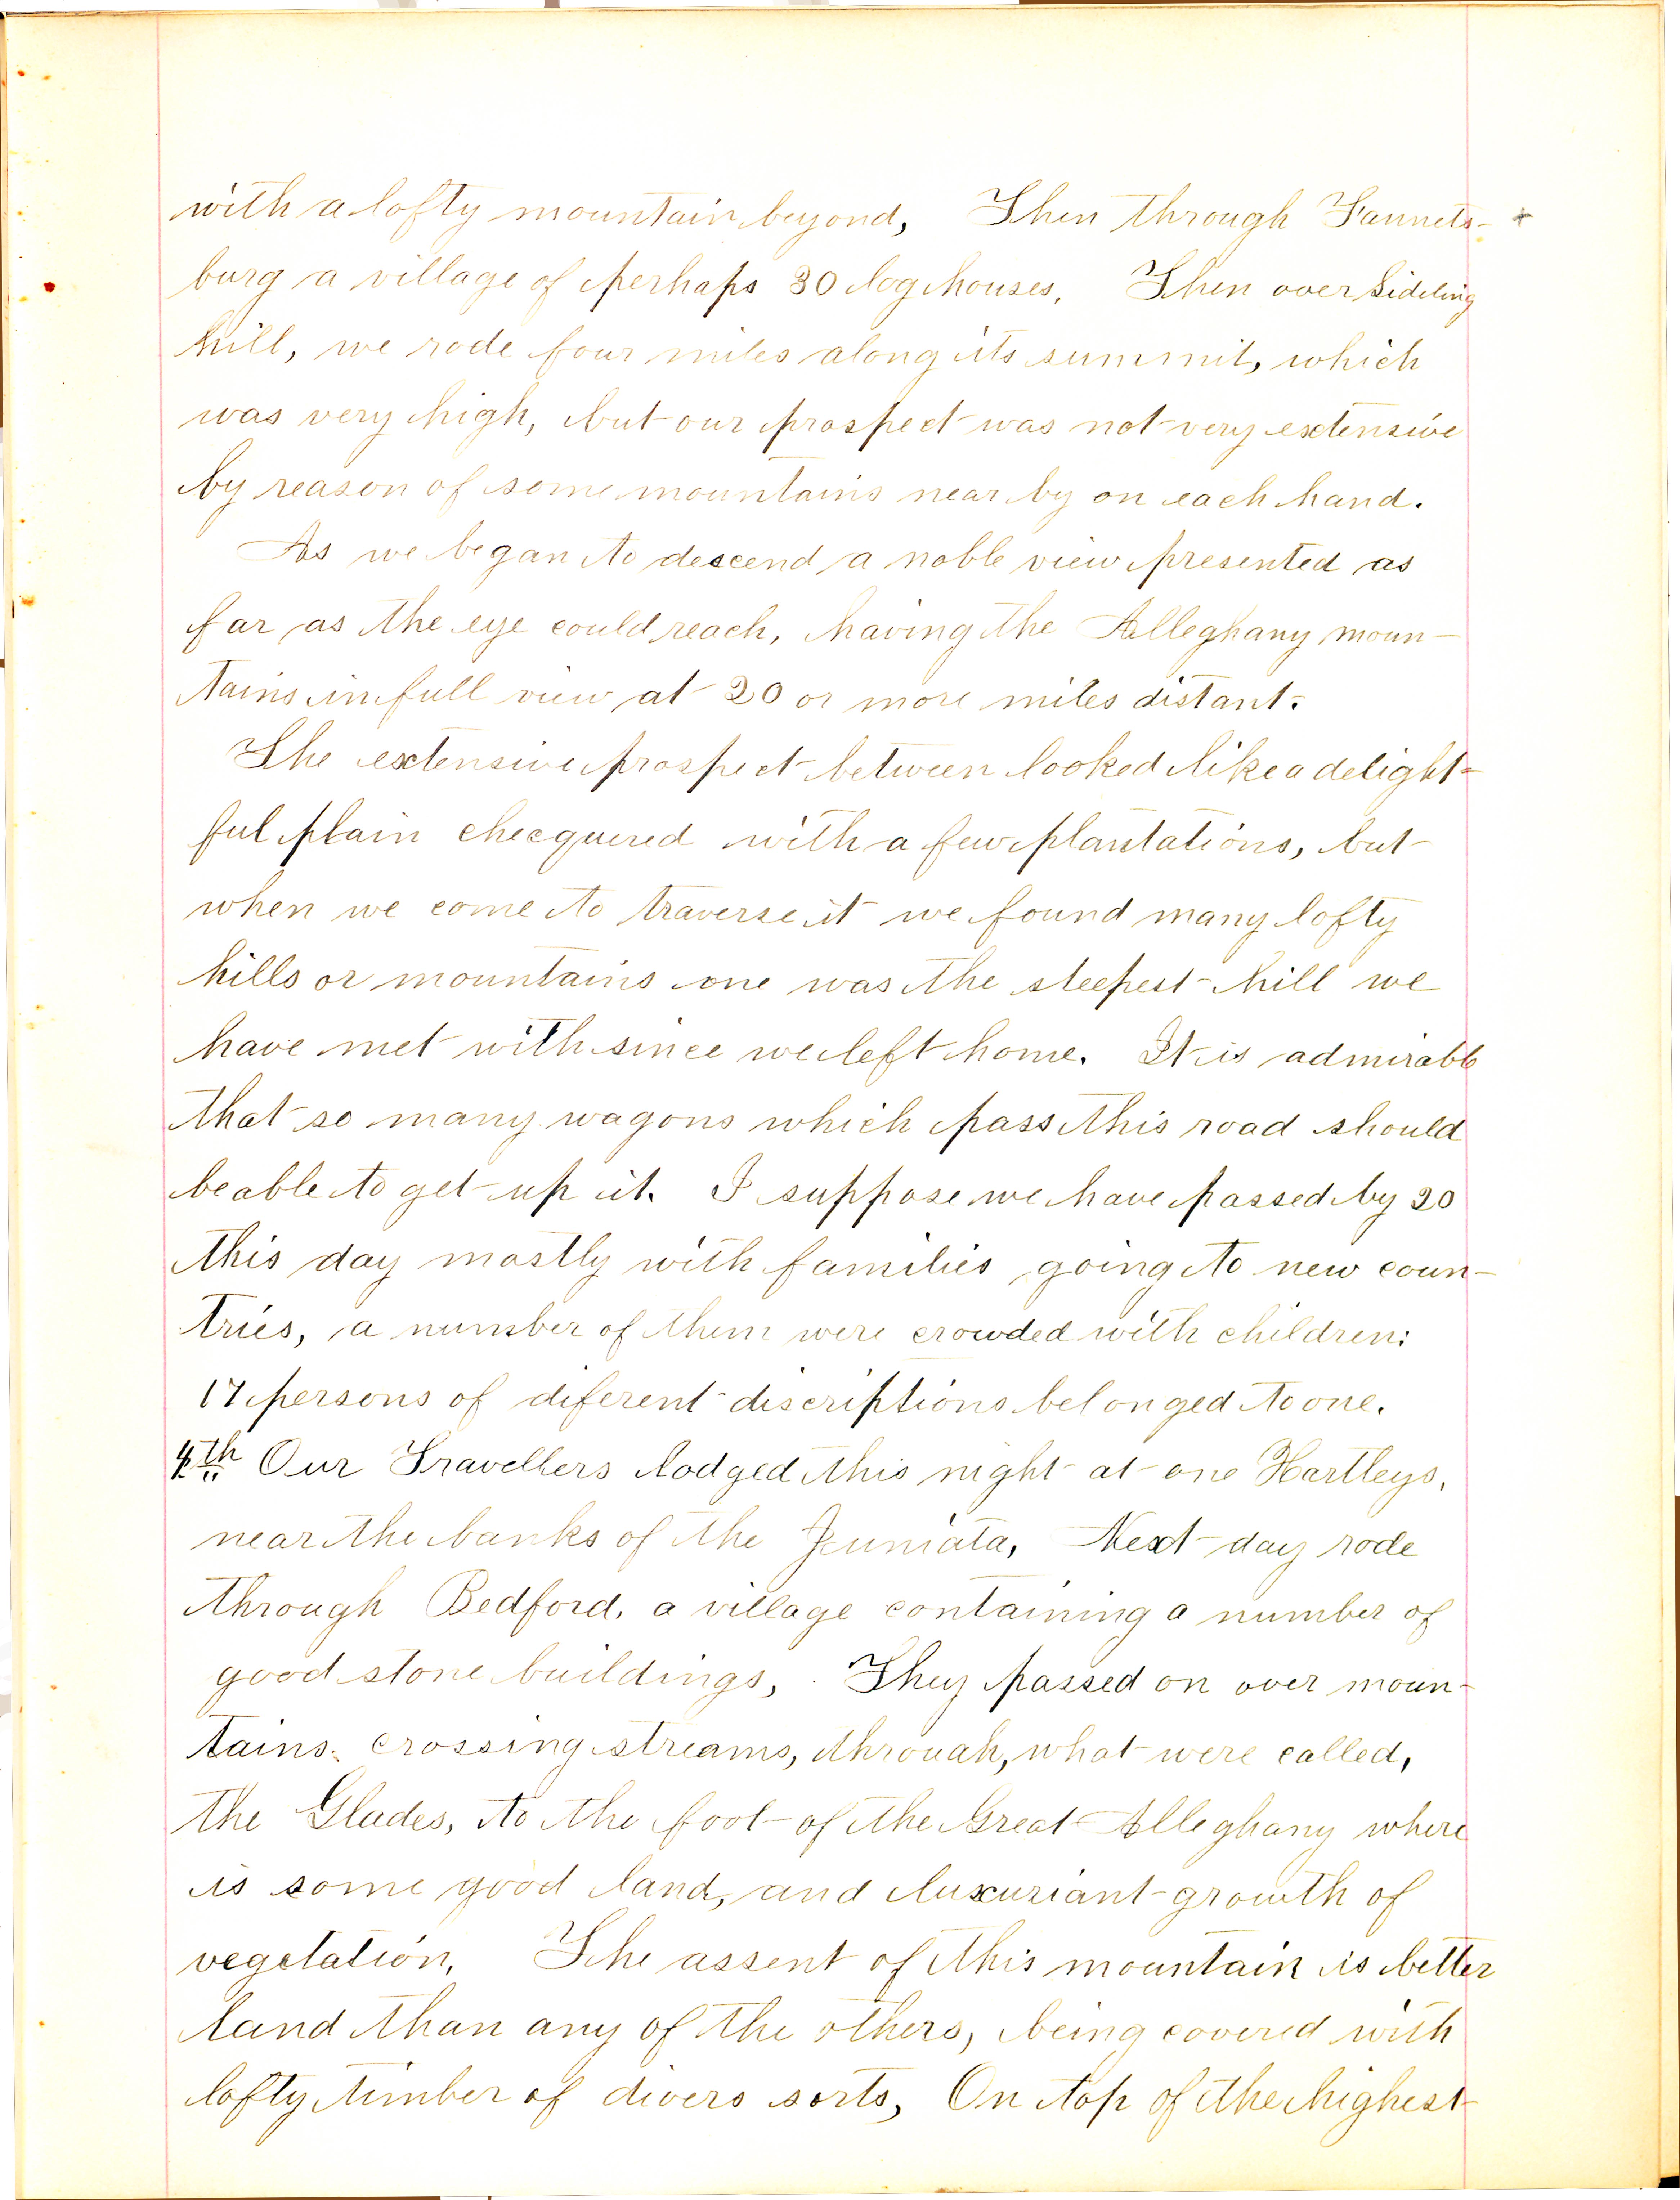 with a lofty mountain beyond, Then through Fannets- +
burg a village of perhaps 30 log houses. Then over Sideling
hill, we rode four miles along its summit, which
was very high, but our prospect was not very extensive
by reason of some mountains near by on each hand.
As we began to descend a noble view presented as
far as the eye could reach, having the Alleghany moun-
tains in full view at 20 or more miles distant.
The extensive prospect between looked like a delight-
ful plain checquered with a few plantations, but
when we come to traverse it we found many lofty
hills or mountains one was the steepest hill we
have met with since we left home. It is admirable
that so many wagons which pass this road should
be able to get up it. I suppose we have passed by 20
this day mostly with families going to new coun-
tries, a number of them were crowded with children:
17 persons of diferent discriptions belonged to one.
4th Our Travellers lodged this night at one Hartleys,
near the banks of the Juniata, Next day rode
through Bedford, a village containing a number of
good stone buildings, They passed on over moun-
tains, crossing streams, through, what were called,
the Glades, to the foot of the Great Alleghany where
is some good land, and luxuriant growth of
vegetation, The assent of this mountain is better
land than any of the others, being covered with
lofty timber of divers sorts, On top of the highest